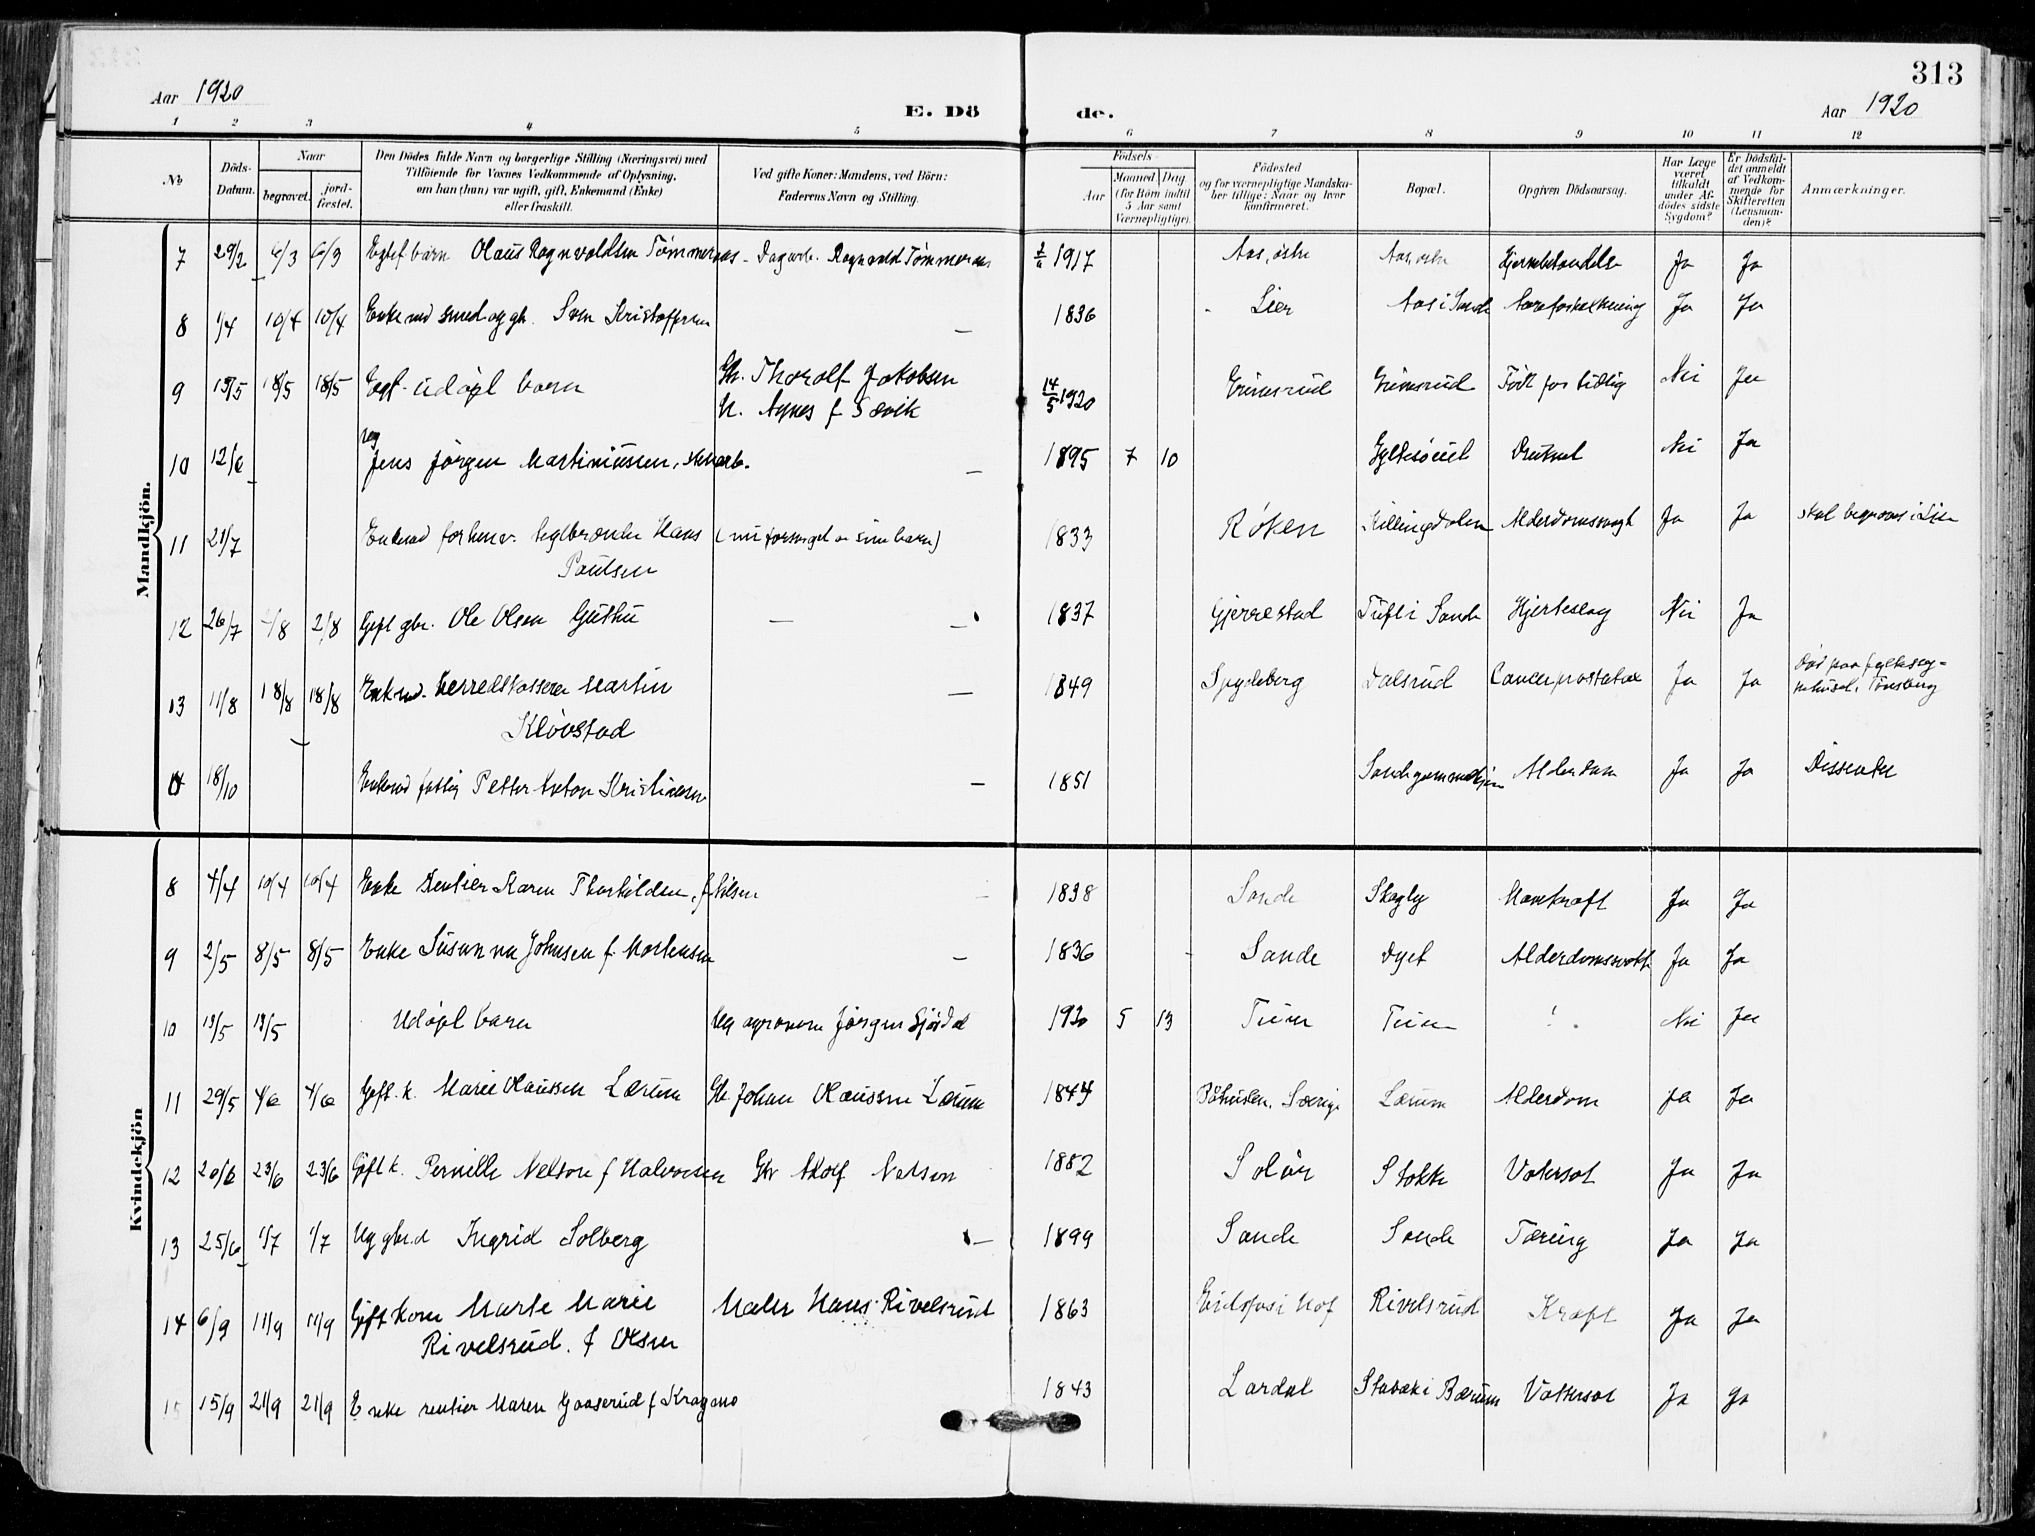 313
Aar 1920
E. Dö
de.
Aar 1920
1 2 3 4 5 6 7 8 9 10 11 12
No.
Döds-Datum.
Naar
begravet.
jord-fæstet.
Den Dödes fulde Navn og borgerlige Stilling (Næringsvei) med
Tilföiende for Voxnes Vedkommende af Oplysning,
om han (hun) var ugift, gift, Enkemand (Enke)
eller fraskilt.
Ved gifte Koner: Mandens, ved Börn:
Faderens Navn og Stilling.
Födsels
Aar
Maaned. Dag.
(for Börn indtil
5 Aar samt
Værnepligtige).
Födested
og for værnepligtige Mandska-
ber tillige: Naar og hvor
konfirmeret.
Bopæl.
Opgiven Dödsaarsag.
Har Læge
været
tilkaldt
under Af-
dödes sidste
Sygdom?
Er Dödsfal-
det anmeldt
af Vedkom-
mende for
Skifteretten
(Lensman-
den)?
Anmærkninger.
Mandkjön.
7 29/2 6/3 6/3 Egtef barn Olaus Ragnvaldsen Tømmeraas - Dagarb. Ragnvald Tømmeraas 1917 Aas, østre Aas, østre Hjernebetændelse Ja Ja
8 1/4 10/4 10/4 Enkemd smed og gb. Sven Kristoffersen - 1836 Lier Aas i Sande Aareforkalkning Ja Ja
9 15/5 18/5 18/5 Egt. udøpt barn Gb. Thorolf Jakobsen
H. Agnes f Sævik 14/5 1920 Grimsrud Grimsrud Født for tidlig Nei Ja
10 12/6 Ug Jens Jørgen Martiniussen, stenarb. - 1895 7 10 Druknet Nei Ja
11 21/7 Enkemd forhenv. teglbrænder Hans (nu forsørget av sine barn)
Paulsen 1833 Røken Killingdalen Alderdomssvagh Ja Ja skal begraves i Lier
12 26/7 2/8 2/8 Gift gbr. Ole Olsen Guthu - - 1837 Gjerrestad Tuft i Sande Hjerteslag Nei Ja
13 11/8 18/8 18/8 Enkemd. Herredskasserer Martin
Kløvstad - 1849 Spydeberg Dalsrud Cancer prostatae Ja Ja Død paa fylkessy-
kehuset i Tønsberg
14 18/10 Enkemd fattig Petter Anton Kristiansen - 1851 Sande gamlehjem Alderdom Ja Ja Dissenter
Kvindekjön
8 4/4 10/4 10/4 Enke Rentier Karen Thorkildsen, f Nilsen - 1838 Sande Skagby Mavekræft Ja Ja
9 2/5 8/5 8/5 Enke Susanna Johnsen f. Mortensen - 1836 Sande Dyet Alderdomssvakh Ja Ja
10 13/5 13/5 Udøpt barn Ug agronom Jørgen 1920 5 13 Tuen Tuen ! Nei Ja
11 29/5 4/6 4/6 Gift. k. Marie Olaussen Lærum Gb. Johan Olaussen Lærum 1844 Bohuslen, Sverige Lærum Alderdom Ja Ja
12 20/6 23/6 23/6 Gift k. Pernille Nelson f Halvorsen Gbr Adolf Nelson 1882 Solør Stokke Vatersot Ja Ja
13 25/6 1/7 1/7 Ug gbr.d Ingrid Solberg - 1899 Sande Sande Tæring Ja Ja
14 6/9 11/9 11/9 Gift kone Marte Marie
Rivelsrud. f Olsen Maler Hans Rivelsrud 1863 Eidsfos i Hof Rivelsrud Kræft Ja Ja
15 15/9 21/9 21/9 Enke rentier Maren Gaaserud f Kragmo 1843 Lardal Stabæk i Bærum Vattersot Ja Ja